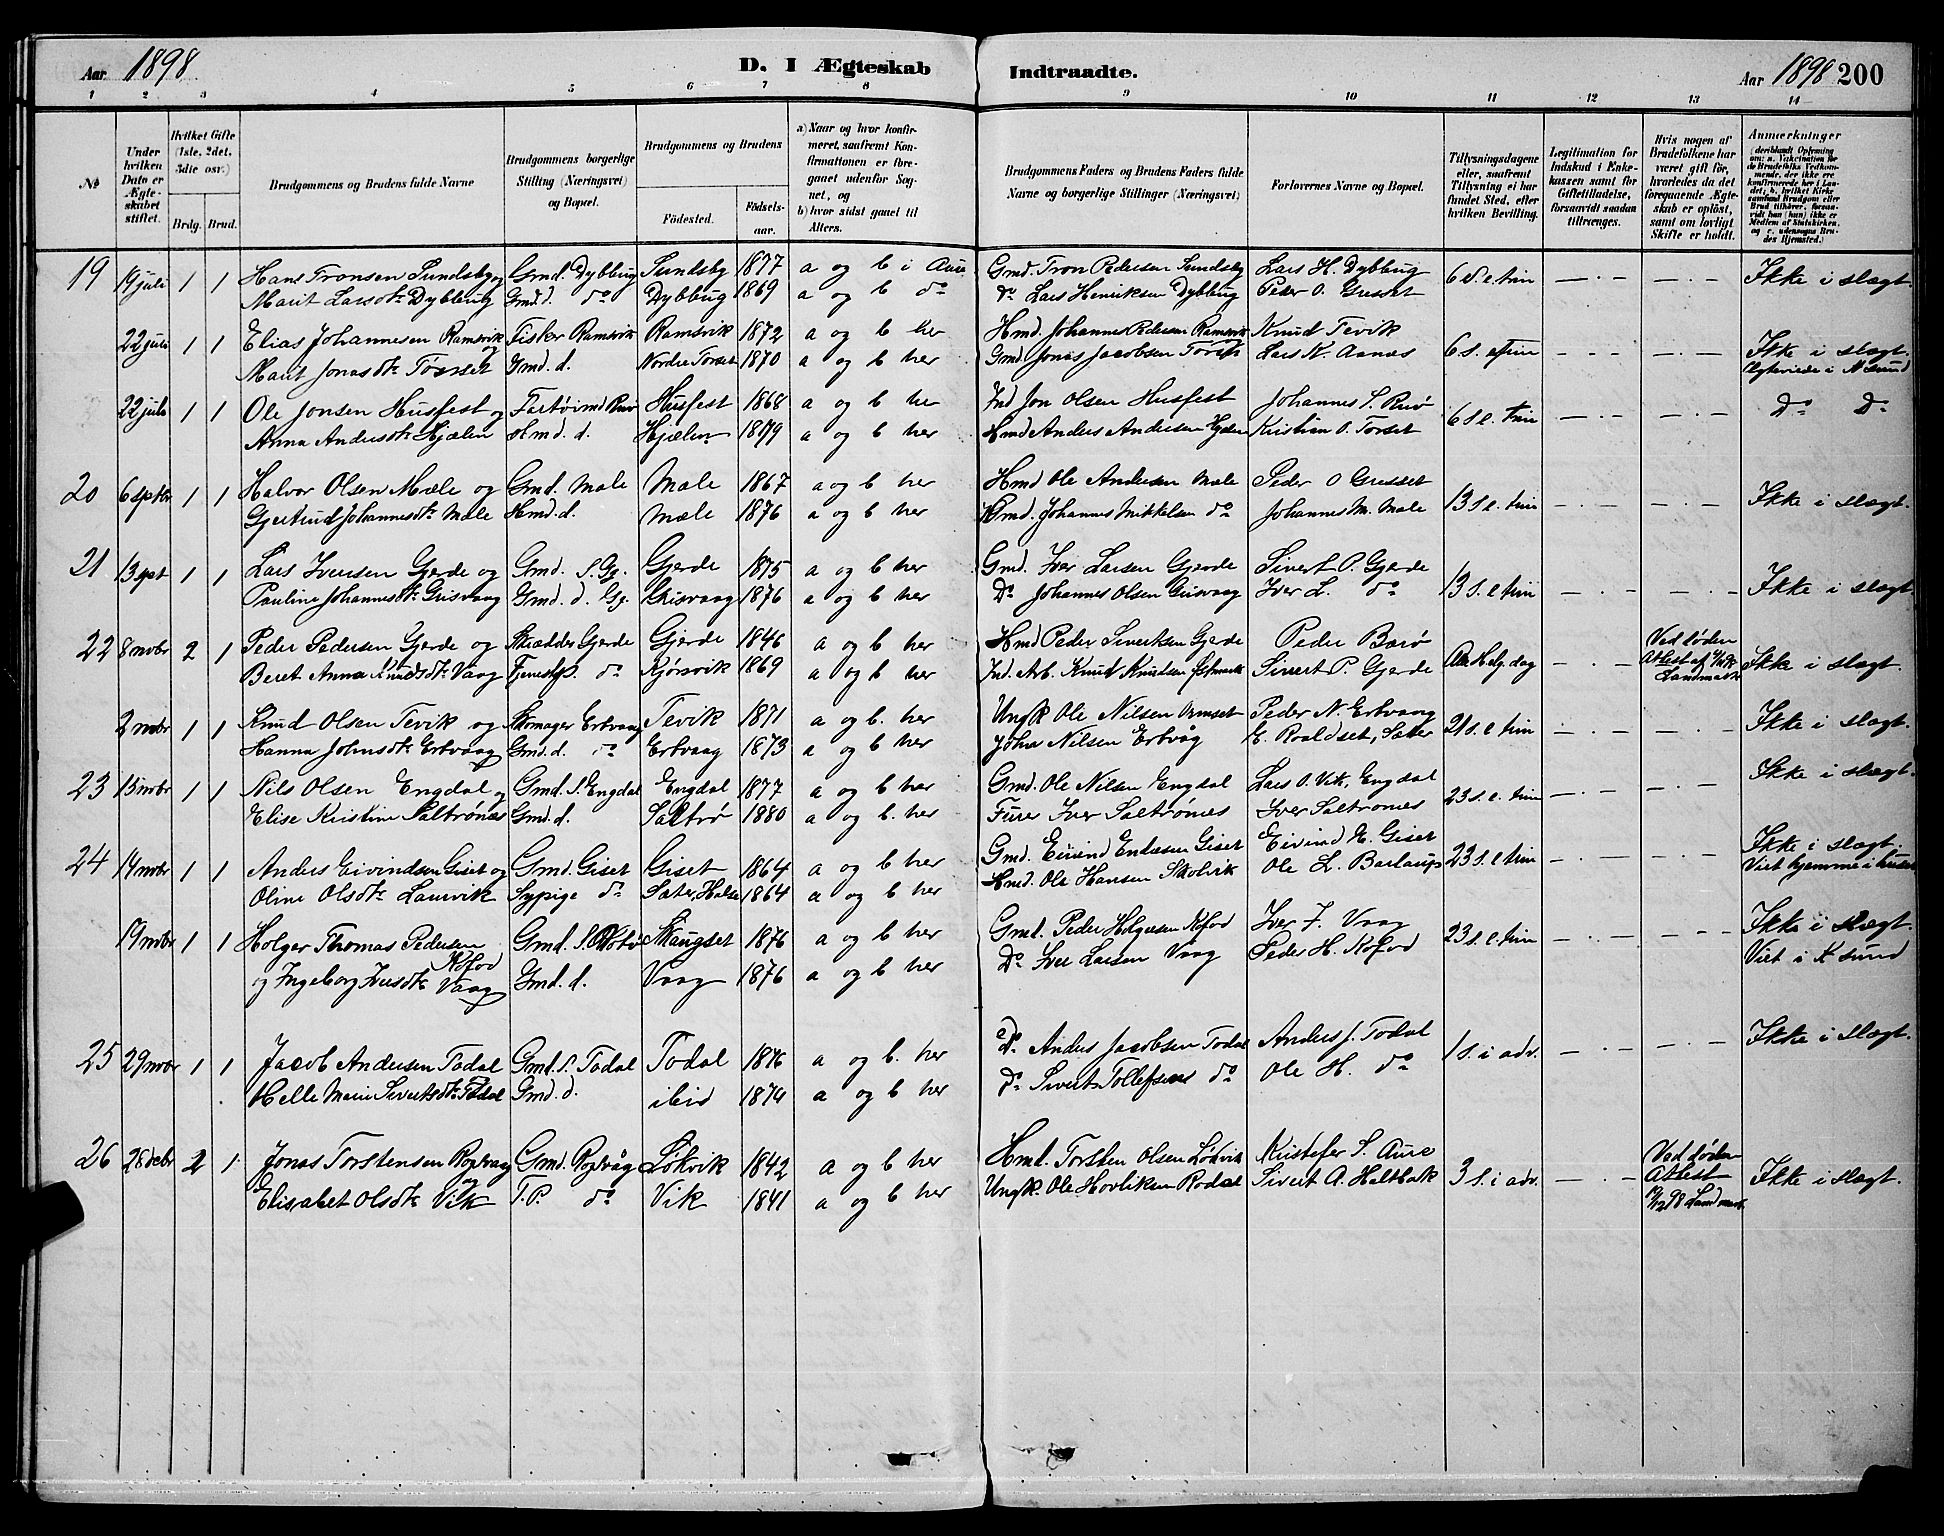 Aar 1898. D. I Ægteskab Indtraadte. Aar 1898 200
1 2 3 4 5 6 7 8 9 10 11 12 13 14
№
Under hvilken Dato er Ægteskabet stiftet.
Hvilket Gifte (1ste, 2det, 3die osv.)
Brdg. Brud.
Brudgommens og Brudens fulde Navne
Brudgommens borgerlige Stilling (Næringsvei) og Bopæl.
Brudgommens og Brudens
Fødested. Fødselsaar.
a) Naar og hvor konfirmeret, saafremt Konfirmationen er foregaaet udenfor Sognet, og
b) hvor sidst gaaet til Alters.
Brudgommens Faders og Brudens Faders fulde Navne og borgerlige Stillinger (Næringsvei)
Forlovernes Navne og Bopæl.
Tillysningsdagene eller, saafremt Tillysning ei har fundet Sted, efter hvilken Bevilling.
Legitimation for Indskud i Enkekassen samt for Giftetilladelse, forsaavidt saadan tiltrænges.
Hvis nogen af Brudefolkene har været gift før, hvorledes da det foregaaende Ægteskab er opløst, samt om lovligt Skifte er holdt.
Anmærkninger
(deriblandt Oplysning om: a. Vakcination for de Brudefolks Vedkommende, der ikke ere konfirmerede her i Landet; b. hvilket Kirkesamfund Brudgom eller Brud tilhører, forsaavidt han (hun) ikke er Medlem af Statskirken, og c. udensogns Brudes Hjemsted.)
19 19 juli 1 1 Hans Tronsen Sundsby og Gmd. Dybbug Sundsby 1877 a og b i Aure Gmd. Tron Pedersen Sundsby Lars H. Dybbug 6 s. e. trin — . — — . — Ikke i slægt.
Marit Larsdtr Dybbug Gmd. d. do Dybbug 1869 a og b do Do Lars Henriksen Dybbug Peder O. Gresset
22 juli 1 1 Elias Johannesen Ramsvik og Fisker Ramsvik Ramsvik 1872 a og b her Hmd. Johannes Pedersen Ramsvik Knud Tevik 6 s. e trin — . — — . — Ikke i slægt.
Marit Jonasdtr Torset Gmd. d. Nordre Torset 1870 a og b her Gmd Jonas Jacobsen Torset Lars K. Aanes Ægteviede i N Sund
22 juli 1 1 Ole Jonsen Husfest og Husfest 1868 a og b her Ind Jon Olsen Husfest Johannes S. Ruø 6 s e. trin — . — — . — Do Do
Anna Andersdtr Hjælen Hmd. d. Hjælen 1879 a og b her Hmd Anders Andersen Hjælen Kristian O. Torset
20 6 sptbr 1 1 Halvor Olsen Mæle og Gmd. Mæle Mæle 1867 a og b her Hmd Ole Andersen Mæle Peder O Gresset 13 s e. trin — . — — . — Ikke i slægt.
Gjertrud Johannesdtr Mæle Hmd. d. Mæle 1876 a og b her Hmd. Johannes Mikkelsen do Johannes M. Mæle
21 13 spt 1 1 Lars Iversen Gjerde og Gmd. S. Gj. Gjerde 1875 a og b her Gmd. Iver Larsen Gjerde Sivert P. Gjerde 13 s. e trin — . — — . — Ikke i slægt
Pauline Johannesdtr Grisvaag Gmd. d. Gj. Grisvaag 1876 a og b her Do Johannes Olsen Grisvaag Iver L. do
22 8 novbr 2 1 Peder Pedersen Gjerde og Skrædder Gjerde Gjerde 1846 a og b her Hmd Peder Sivertsen Gjerde Peder Barø Alle Helg. dag — . — Ved døden
Beret Anna Knudsdtr Vaag do Kjørsvik 1869 a og b her Ind. Arb. Knud Knudsen Sivert P. Gjerde Attest af Landmark Ikke i slægt.
2 novbr 1 1 Knud Olsen Tevik og Skomager Ertvaag Tevik 1871 a og b. her Ungk Ole Nilsen Ormset Peder N. Ertvaag 21 s. e trin — . — — . — Ikke i slægt.
Hanna Johnsdtr Ertvaag Gmd. d. do Ertvaag 1873 a og b her John Nilsen Ertvåg E. Roaldset, Sæter
23 15 novbr 1 1 Nils Olsen Engdal og Gmd. S. Engdal Engdal 1877 a og b her Gmd. Ole Nilsen Engdal Lars O. Vik, Engdal 23 s. e. trin — . — — . — Ikke i slægt.
Elise Kristine Saltrønes Gmd. d. Saltrø 1880 a og b. her Furer Iver Saltrønes Iver Saltrønes
24 14 novbr 1 1 Anders Eivindsen Giset og Gmd. Giset Giset 1864 a og b her Gmd. Eivind Endresen Giset Eivind H. Giset 23 s. e trin — . — — . — Ikke i slægt.
Oline Olsdtr Laurvik Sypige do Sæter, Halse 1864 a og b her Hmd. Ole Hansen Skolvik Ole L. Bærlaup Viet hjemme i huset
19 novbr 1 1 Holger Thomas Pedersen Kofod Gmd. S. Skaugset 1876 a og b her Gmd. Peder Holgersen Kofod Iver J. Vaag 23 s. e. trin — . — — . — Ikke i slægt.
og Ingeborg Iversdtr Vaag Gmd. d. Vaag 1876 a og b her Do Iver Larsen Vaag Peder H. Kofod Viet i K sund
25 29 novbr 1 1 Jacob Andersen Todal Gmd. S. Todal Todal 1876 a og b. her Do Anders Jacobsen Todal Anders J. Todal 1 s. i adv. — . — — . — Ikke i slægt.
Helle Marie Sivertsdtr Todal Gmd. d. ibid 1874 a og b her Do Sivert Tollefsen do Ole H. do
26 28 debr 2 1 Jonas Torstensen Ropvaag og Gmd. Ropvåg Løkvik 1842 a og b her Hmd. Torsten Olsen Løkvik Kristofer S. Aure 3 s. i adv. — . — Ved døden
Elisabet Olsdtr Vik T. P. do Vik 1841 a og b her Ungk. Ole Hovliksen Rodal Sivert A. Haltbak Attest 98 Landmark. Ikke i slægt.